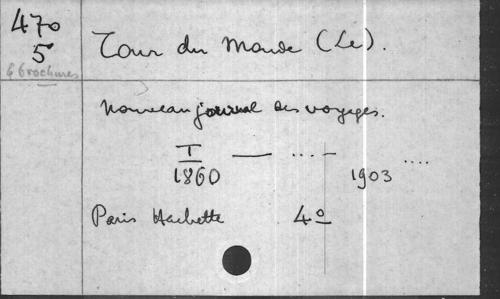 470
5
6 brochures
Tour du Monde (Le).
Nouveau journal des voyages.
I — ... —  ....
1860 1903
Paris Hachette 4º